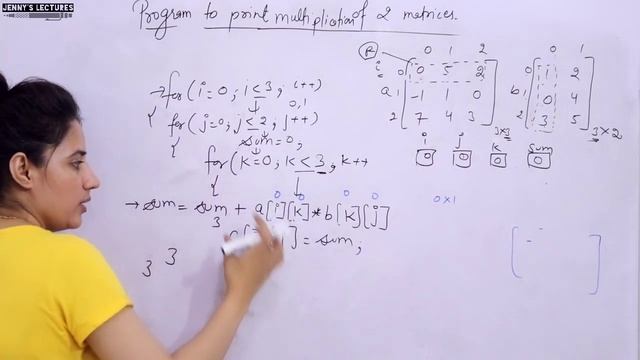 JENNY'S LECTURES
Program to print multiplication of 2 matrices.
→ for (i=0; i<3; i++)
0,1
{ for (j=0; j<2; j++)
sum=0;
{ for (k=0; k<3, k++
{
0 0 0 0
→ sum = sum + a[i][k] * b[k][j]
3
] = sum;
3 3
R
0 1 2
i 0 0 5 2
a 1 -1 1 0
2 7 4 3
3×3
0 1
0 1 2
b 1 0 4
2 3 5
3×2
i j k sum
0 0 0 0
0x1